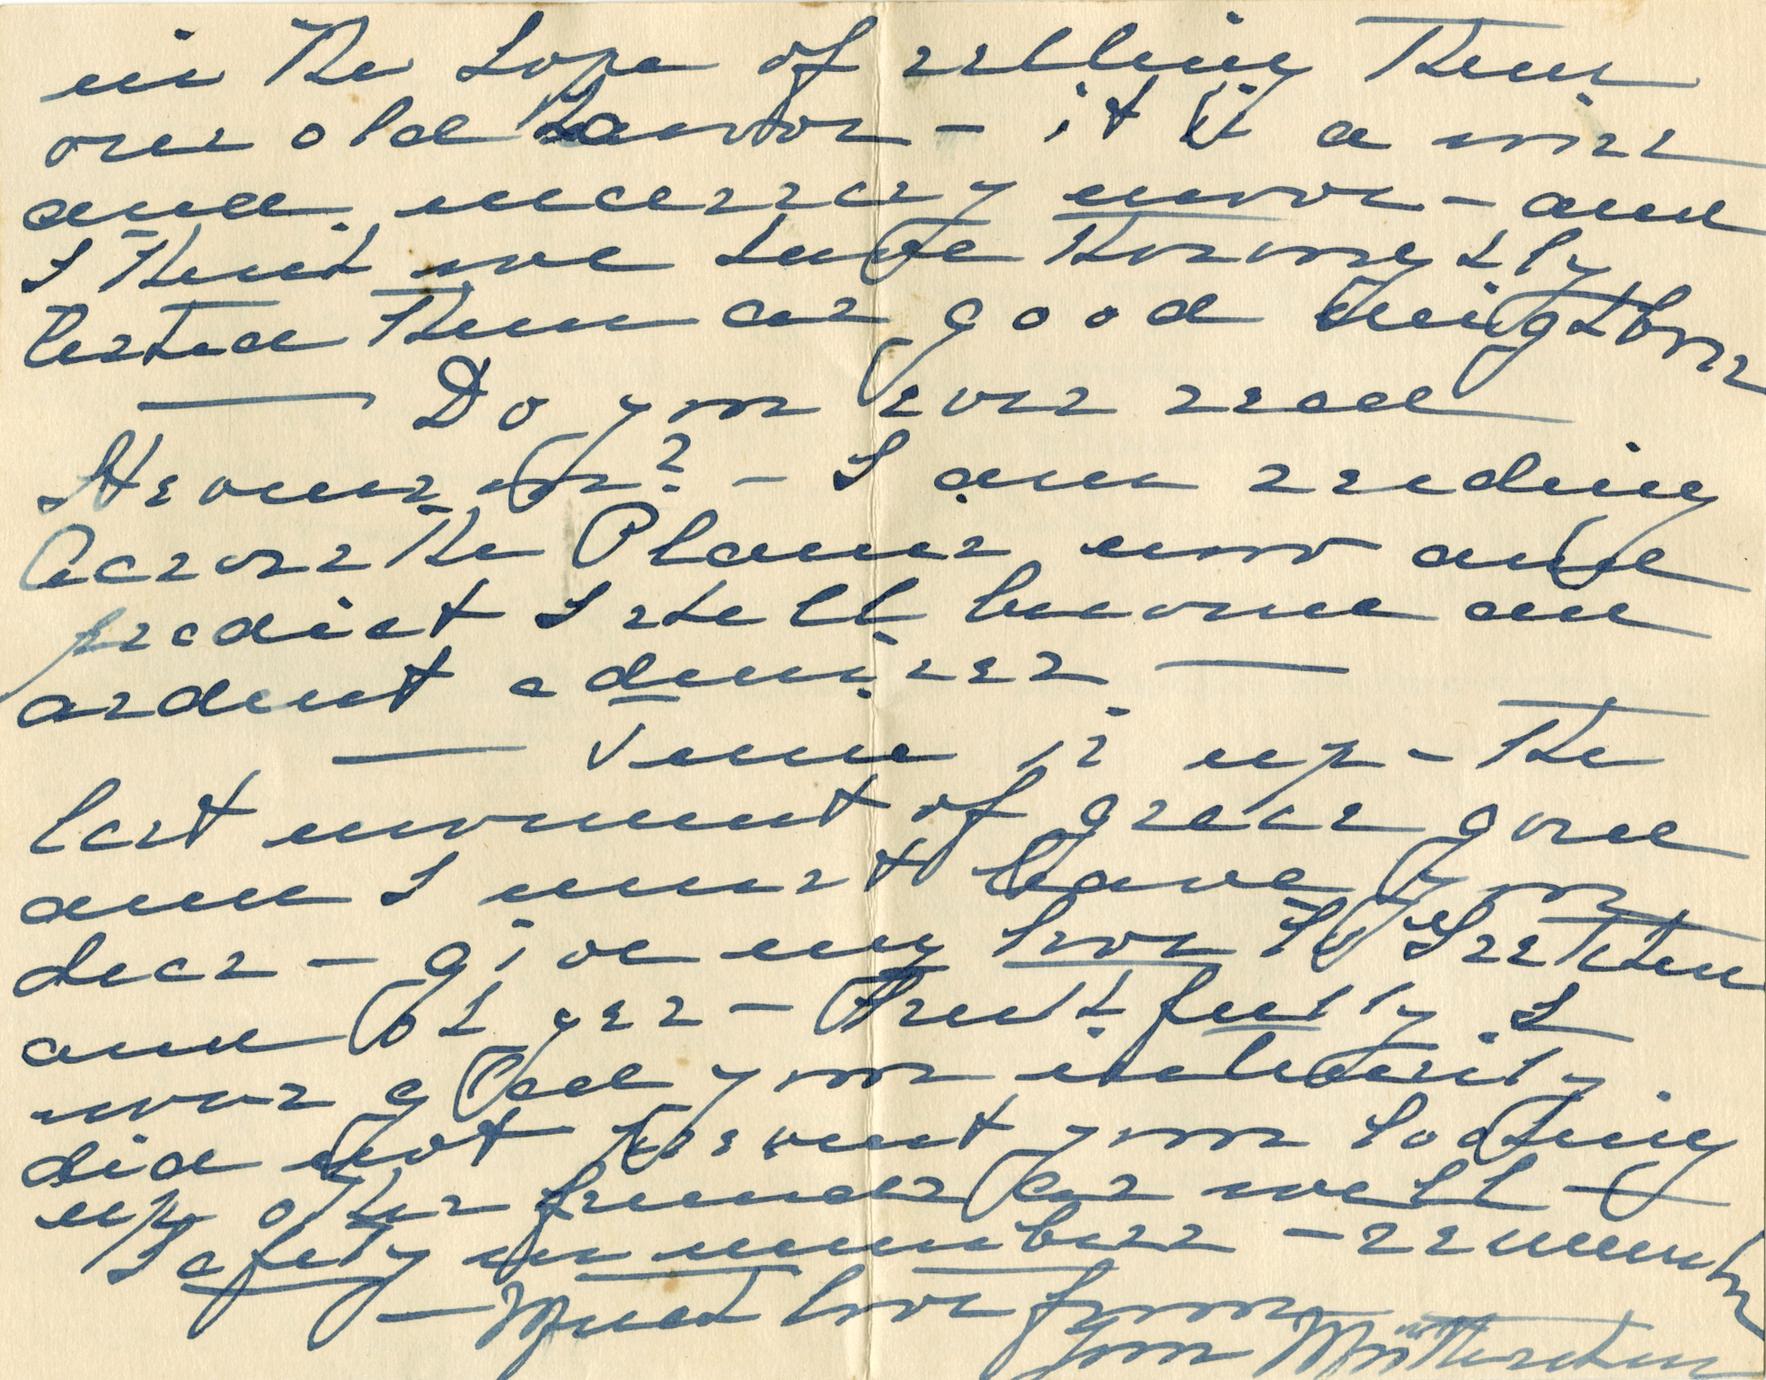 in the hope of selling them
our old ~ it is a wise
and necessary move — and
I think we have thoroughly
tested them as good neighbors
— Do you ever read
Hemingway? — I am reading
Across the River now and
predict I shall become an
ardent admirer. —
— Time is up — the
last moment of grace gone
and I must leave you
dear — give my love to Gretchen
and — Truthfully I
was glad your
did not prevent your looking
up other friends as well —
Safety in numbers — remember
— Much love from
your Mütterchen